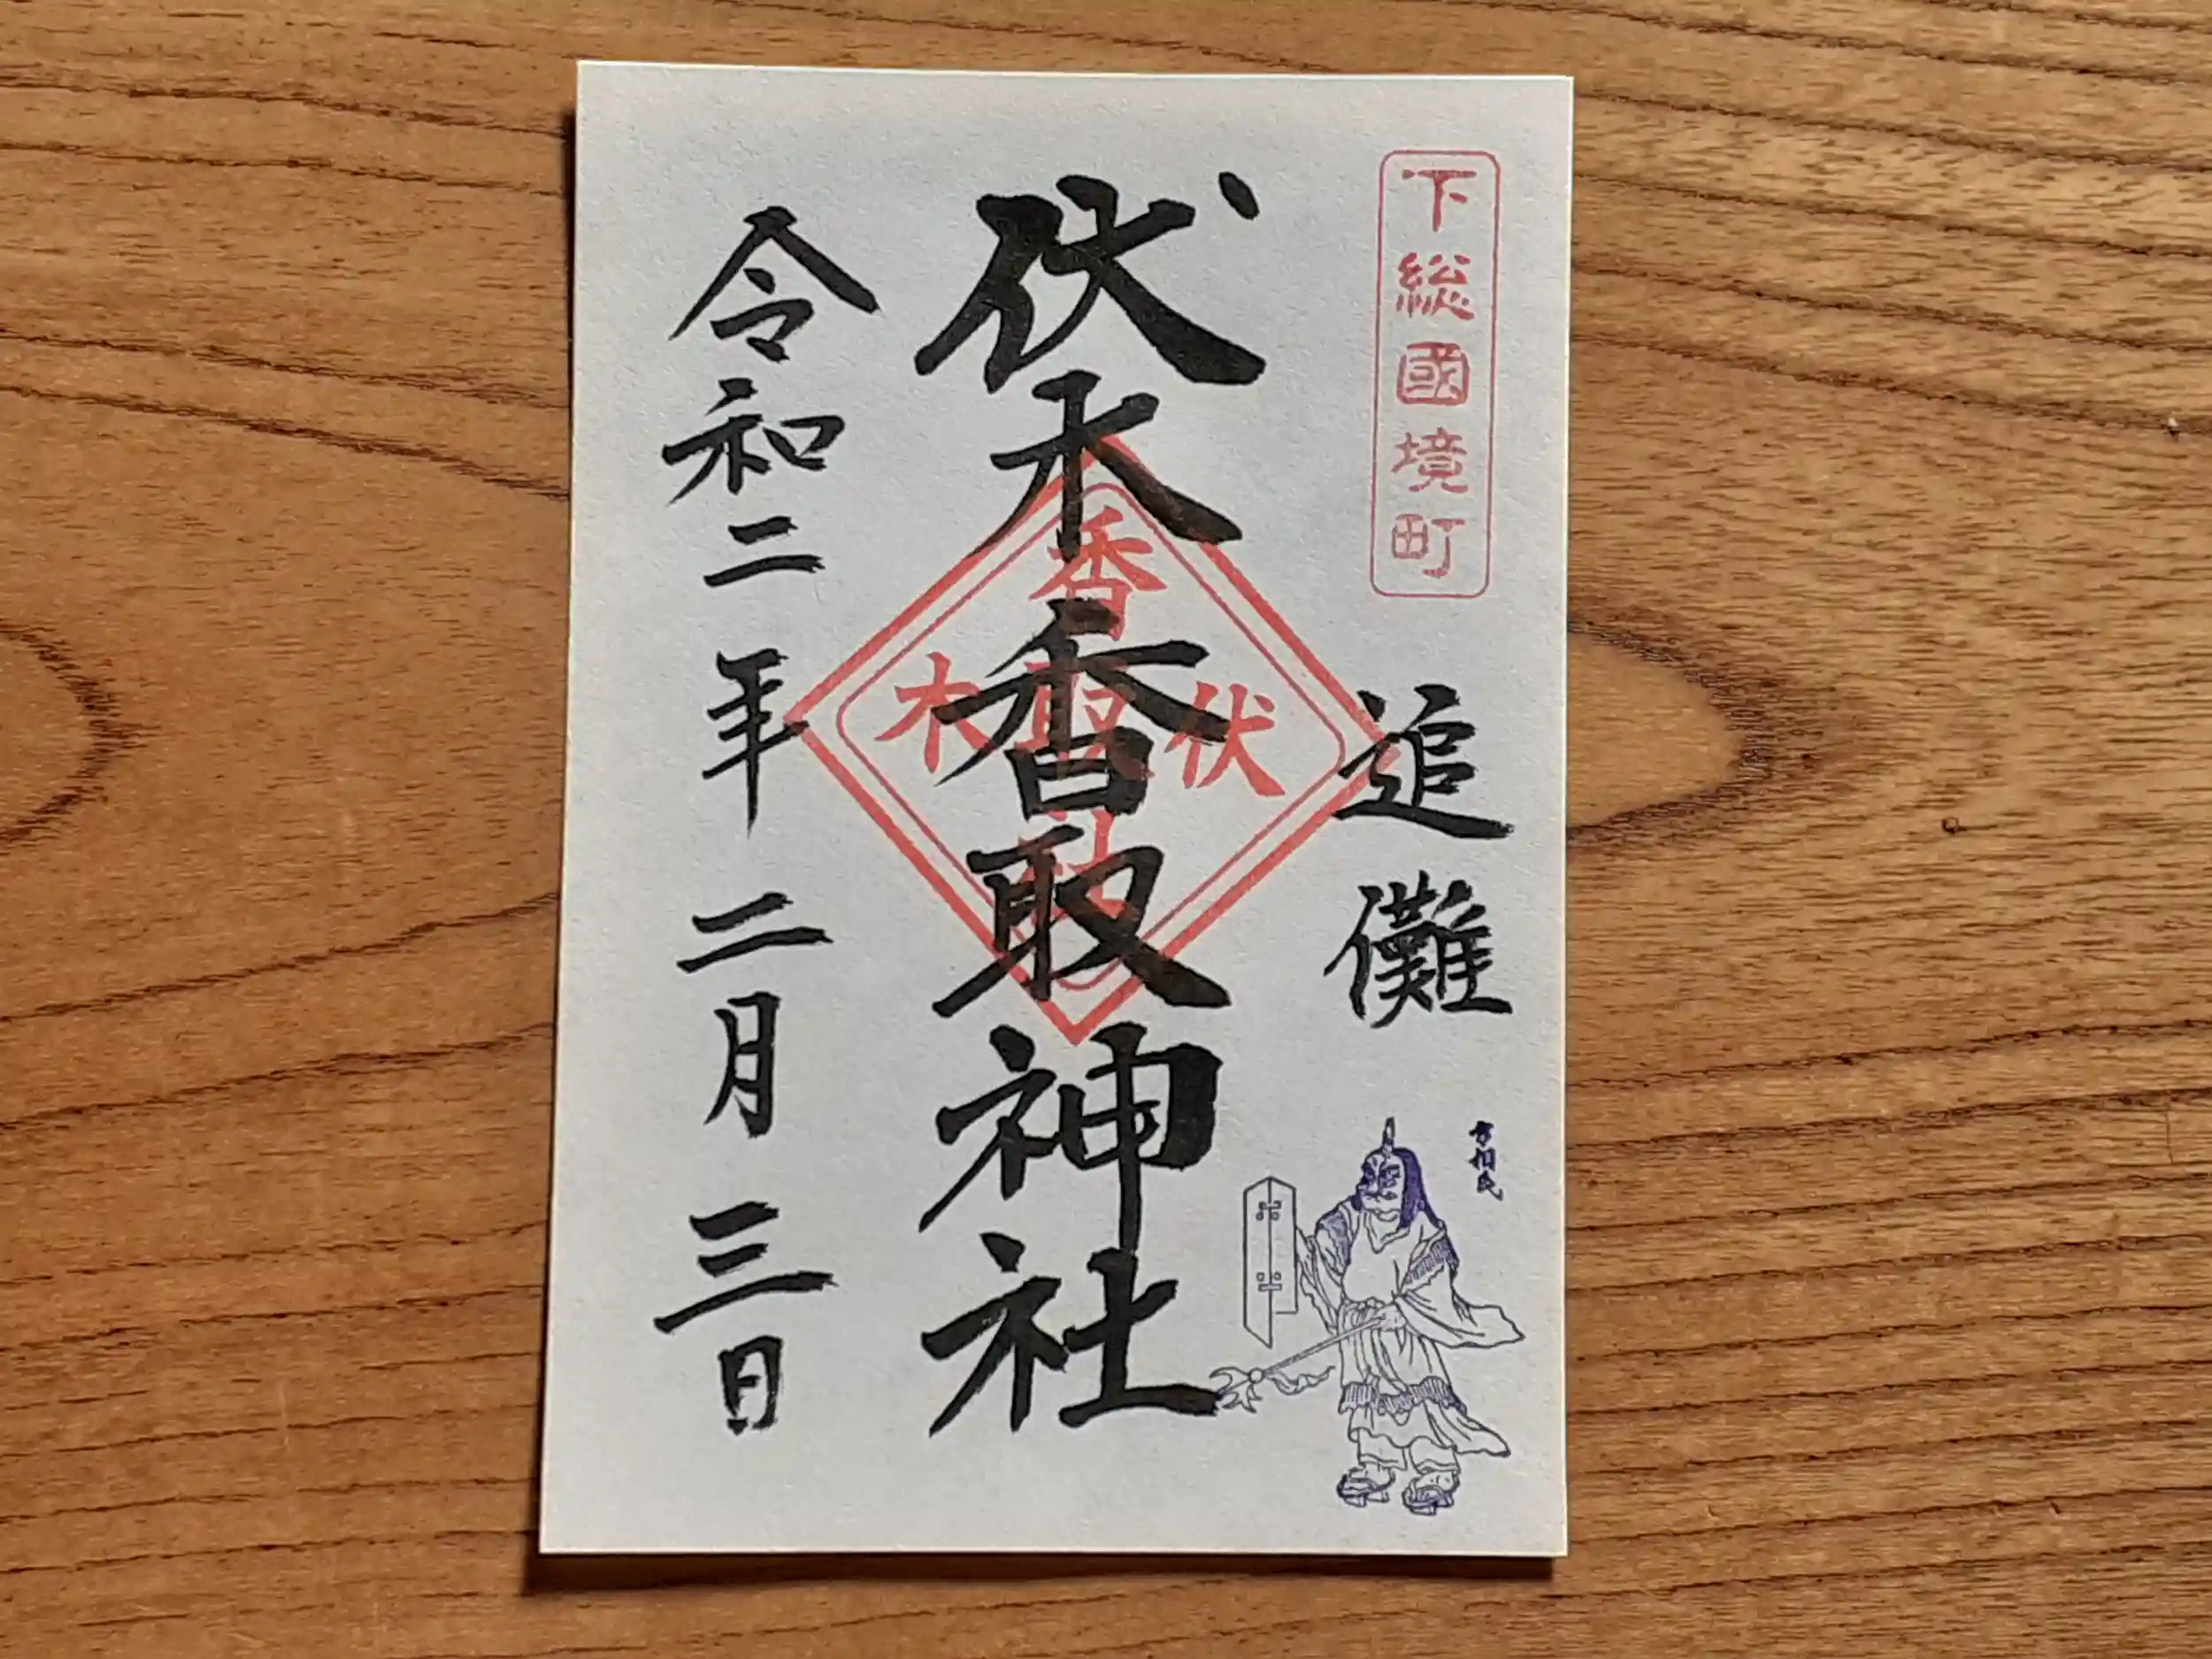 下総國境町
追儺
方相氏
伏木香取神社
香
伏取木
社
令和二年二月三日